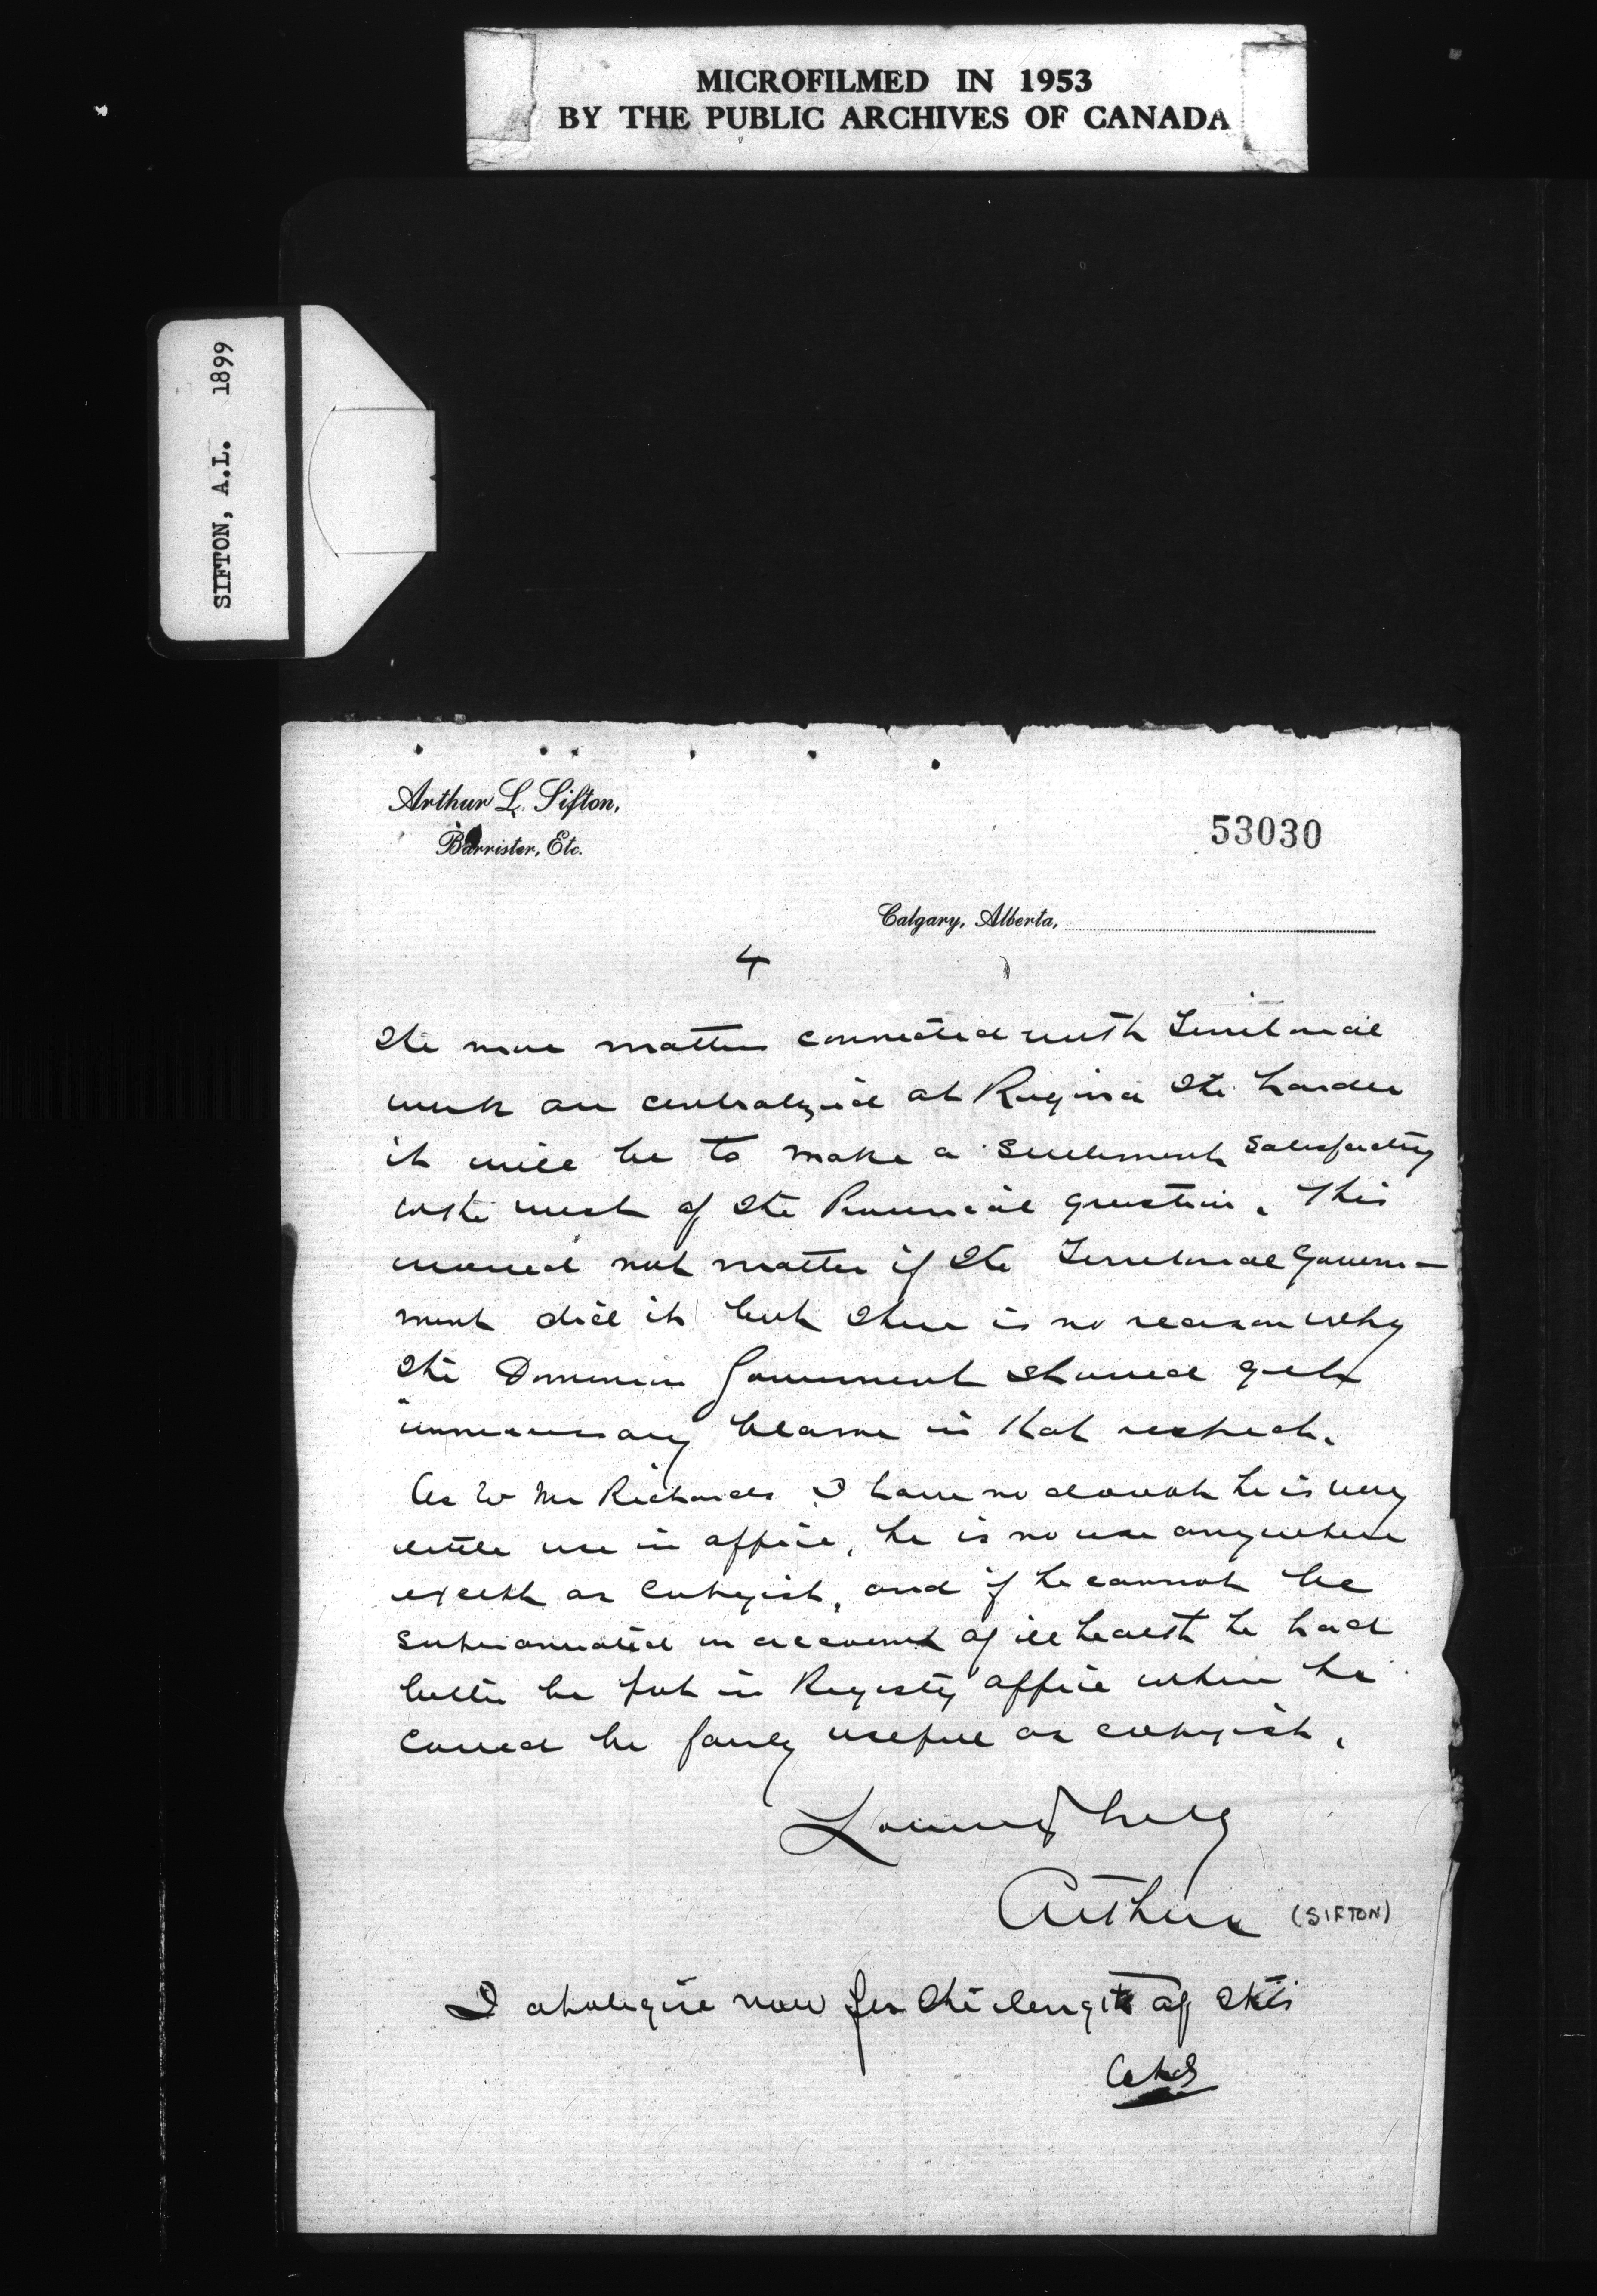 MICROFILMED IN 1953
BY THE PUBLIC ARCHIVES OF CANADA
SIFTON, A.L. 1899
Arthur L. Sifton,
Barrister, Etc.
53030
Calgary, Alberta,
4
The more matters connected with Territorial
work are centralized at Regina the harder
it will be to make a settlement satisfactory
to the west of the Provincial question. This
would not matter if the Territorial Govern-
ment did it but there is no reason why
the Dominion Government should get
unnecessary blame in that respect.
As to Mr Richards I have no doubt he is very
little use in office, he is no use anywhere
except as copyist, and if he cannot be
superannuated on account of ill health he had
better be put in Registry office where he
could be fairly useful as copyist.
Yours truly
Arthur (SIFTON)
I apologize now for the length of this
ALS